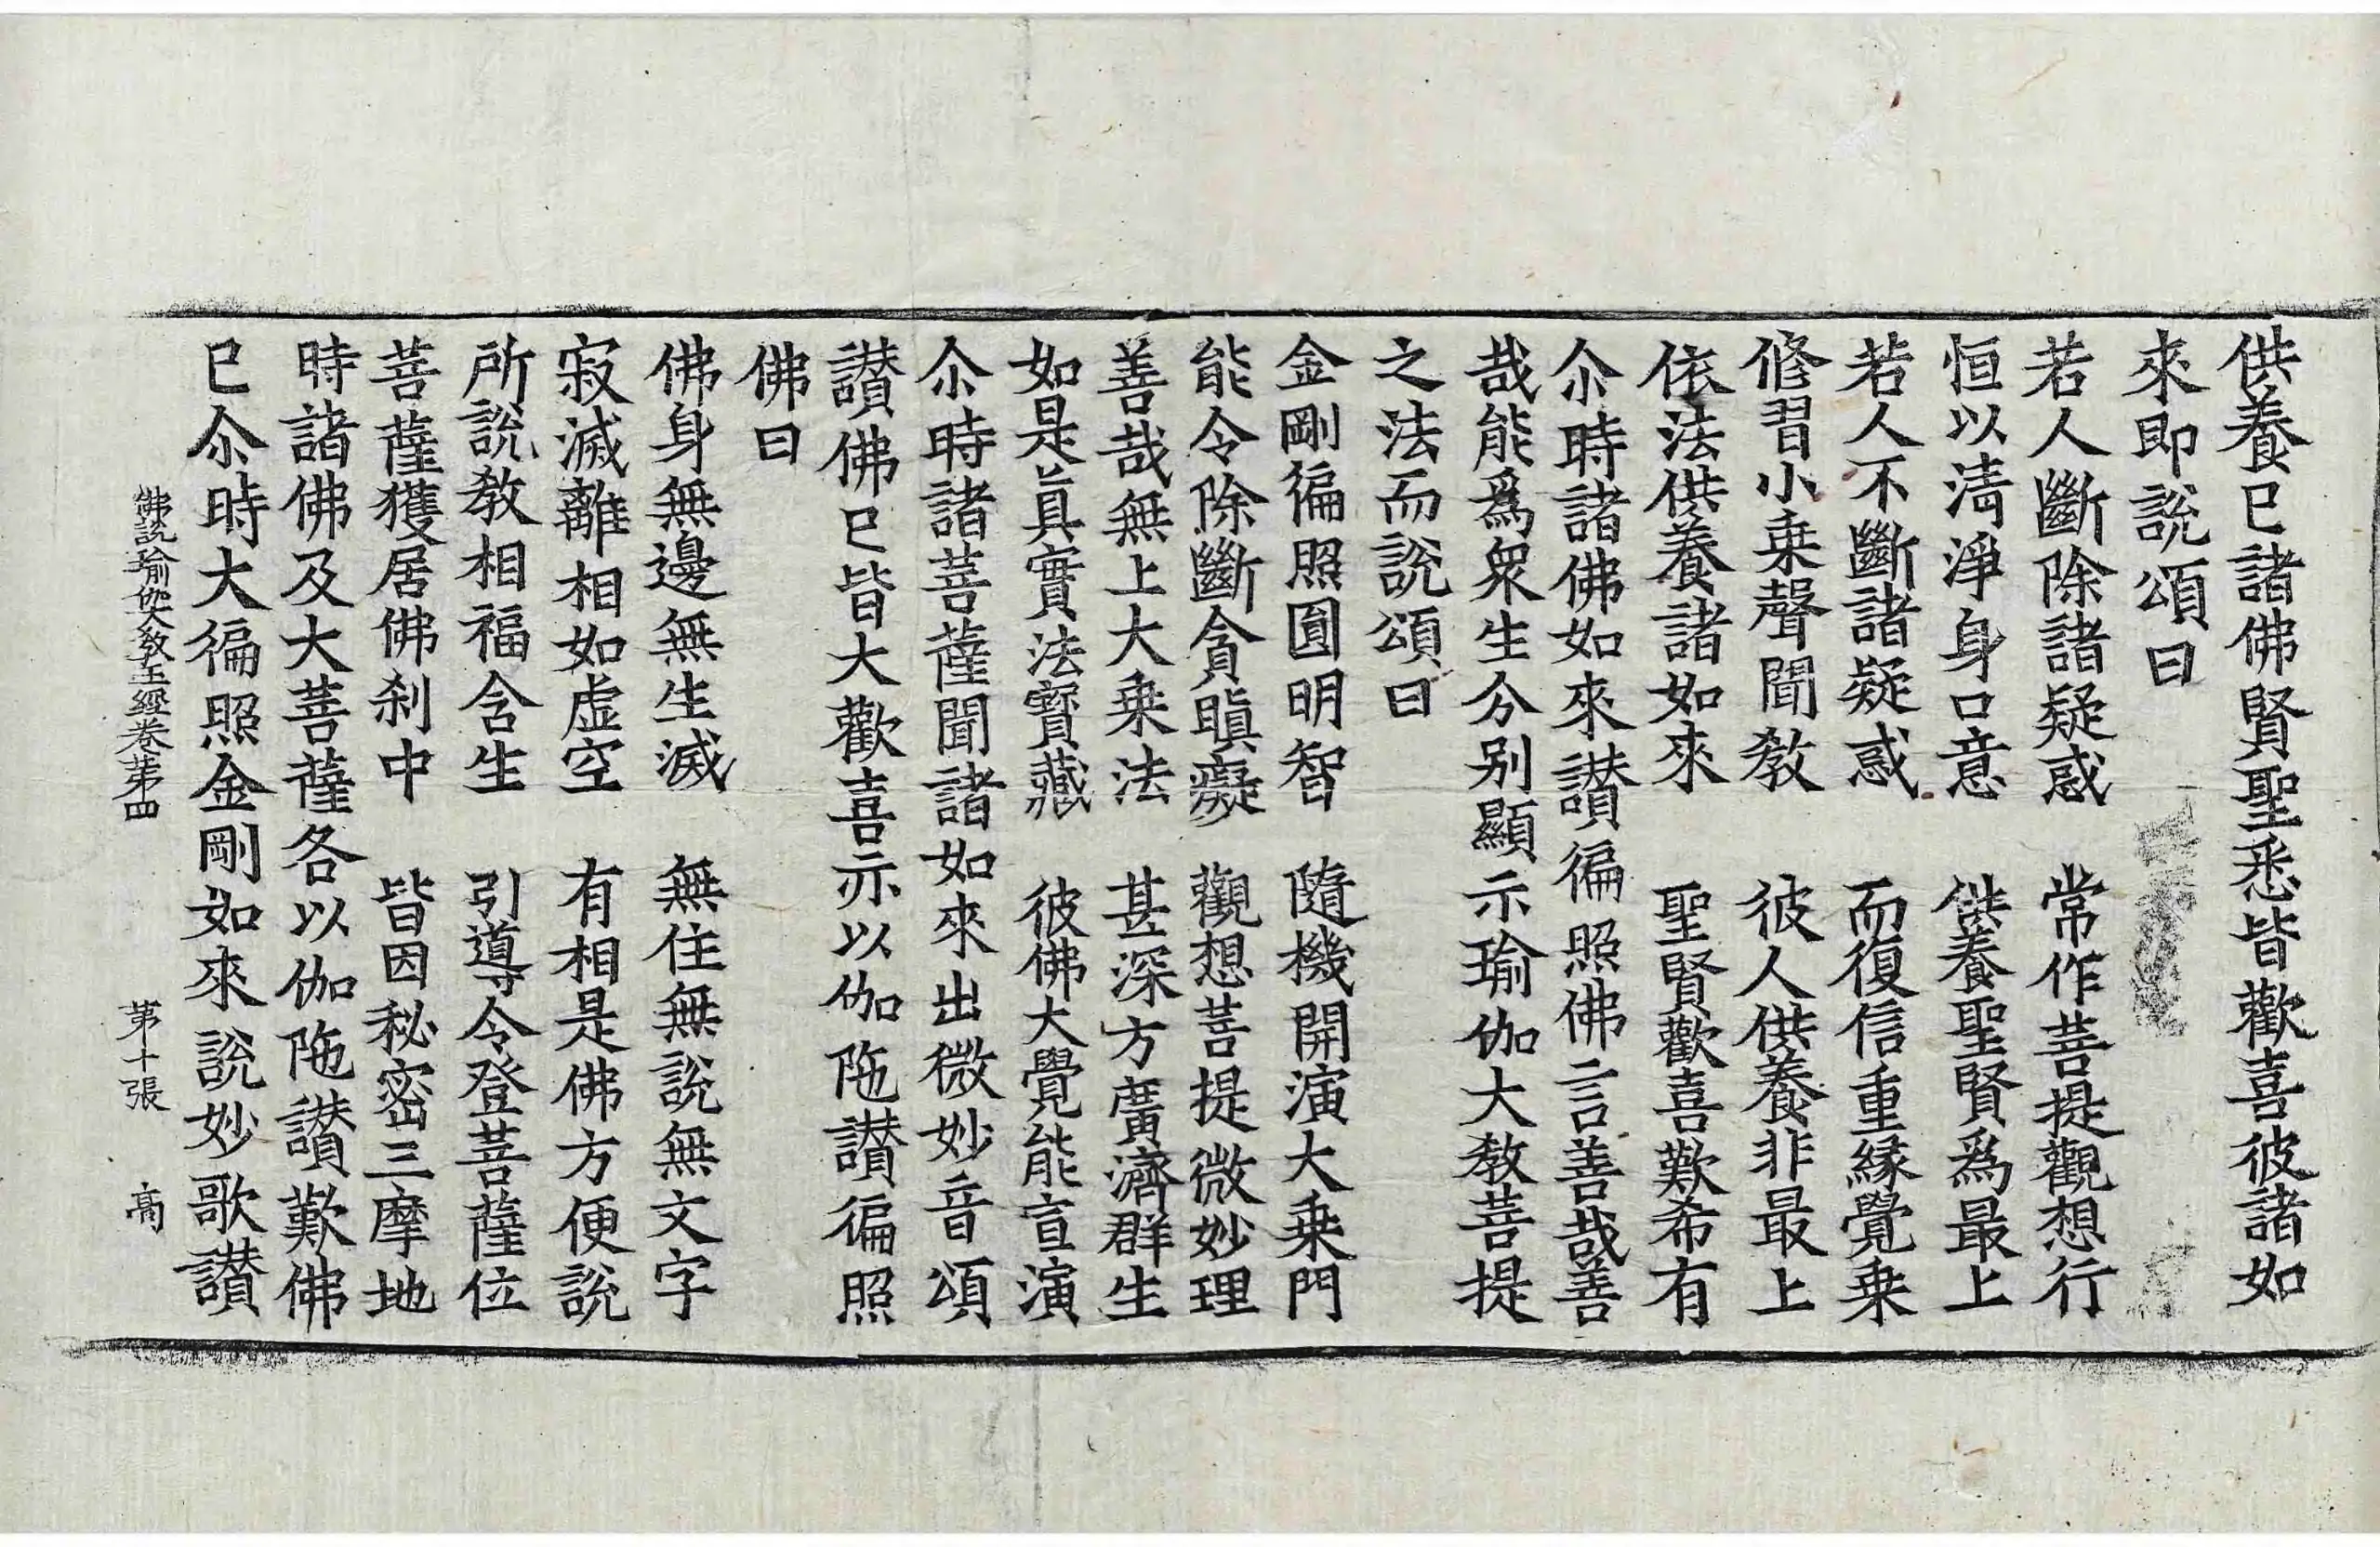 供養已諸佛賢聖悉皆歡喜彼諸如
來即說頌曰
若人斷除諸疑惑　常作菩提觀想行
恒以清淨身口意　供養聖賢爲最上
若人不斷諸疑惑　而復信重緣覺乘
修習小乘聲聞教　彼人供養非最上
依法供養諸如來　聖賢歡喜歎希有
尒時諸佛如來讃徧照佛言善哉善
哉能爲衆生分别顯示瑜伽大教菩提
之法而說頌曰
金剛徧照圎明智　隨機開演大乘門
能令除斷貪瞋癡　觀想菩提微妙理
善哉無上大乘法　甚深方廣濟群生
如是真實法寳藏　彼佛大覺能宣演
尒時諸菩薩聞諸如來出微妙音頌
讃佛已皆大歡喜亦以伽陁讃徧照
佛曰
佛身無邊無生滅　無住無說無文字
寂滅離相如虚空　有相是佛方便說
所說教相福含生　引導令登菩薩位
菩薩獲居佛刹中　皆因秘密三摩地
時諸佛及大菩薩各以伽陁讃歎佛
已尒時大徧照金剛如來說妙歌讃
佛說瑜伽大教王經卷第四　第十張　高